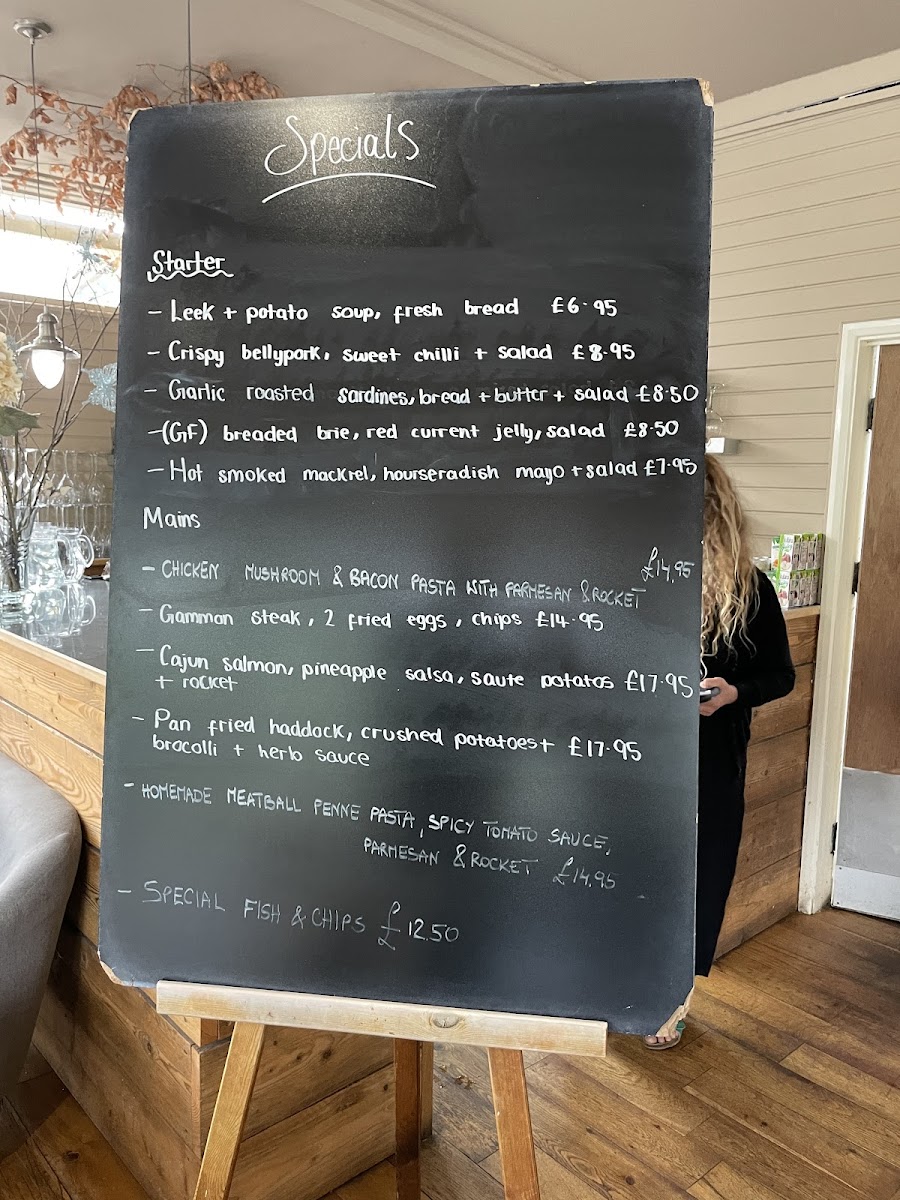 Specials
Starter
- Leek + potato soup, fresh bread £6.95
- Crispy bellypork, sweet chilli + salad £8.95
- Garlic roasted sardines, bread + butter + salad £8.50
- (GF) breaded brie, red current jelly, salad £8.50
- Hot smoked mackrel, hourseradish mayo + salad £7.95
Mains
- CHICKEN MUSHROOM & BACON PASTA WITH PARMESAN & ROCKET £14,95
- Gammon steak, 2 fried eggs, chips £14.95
- Cajun salmon, pineapple salsa, saute potatos £17.95
+ rocket
- Pan fried haddock, crushed potatoes + £17.95
brocolli + herb sauce
- HOMEMADE MEATBALL PENNE PASTA, SPICY TOMATO SAUCE,
PARMESAN & ROCKET £14,95
- SPECIAL FISH & CHIPS £12.50